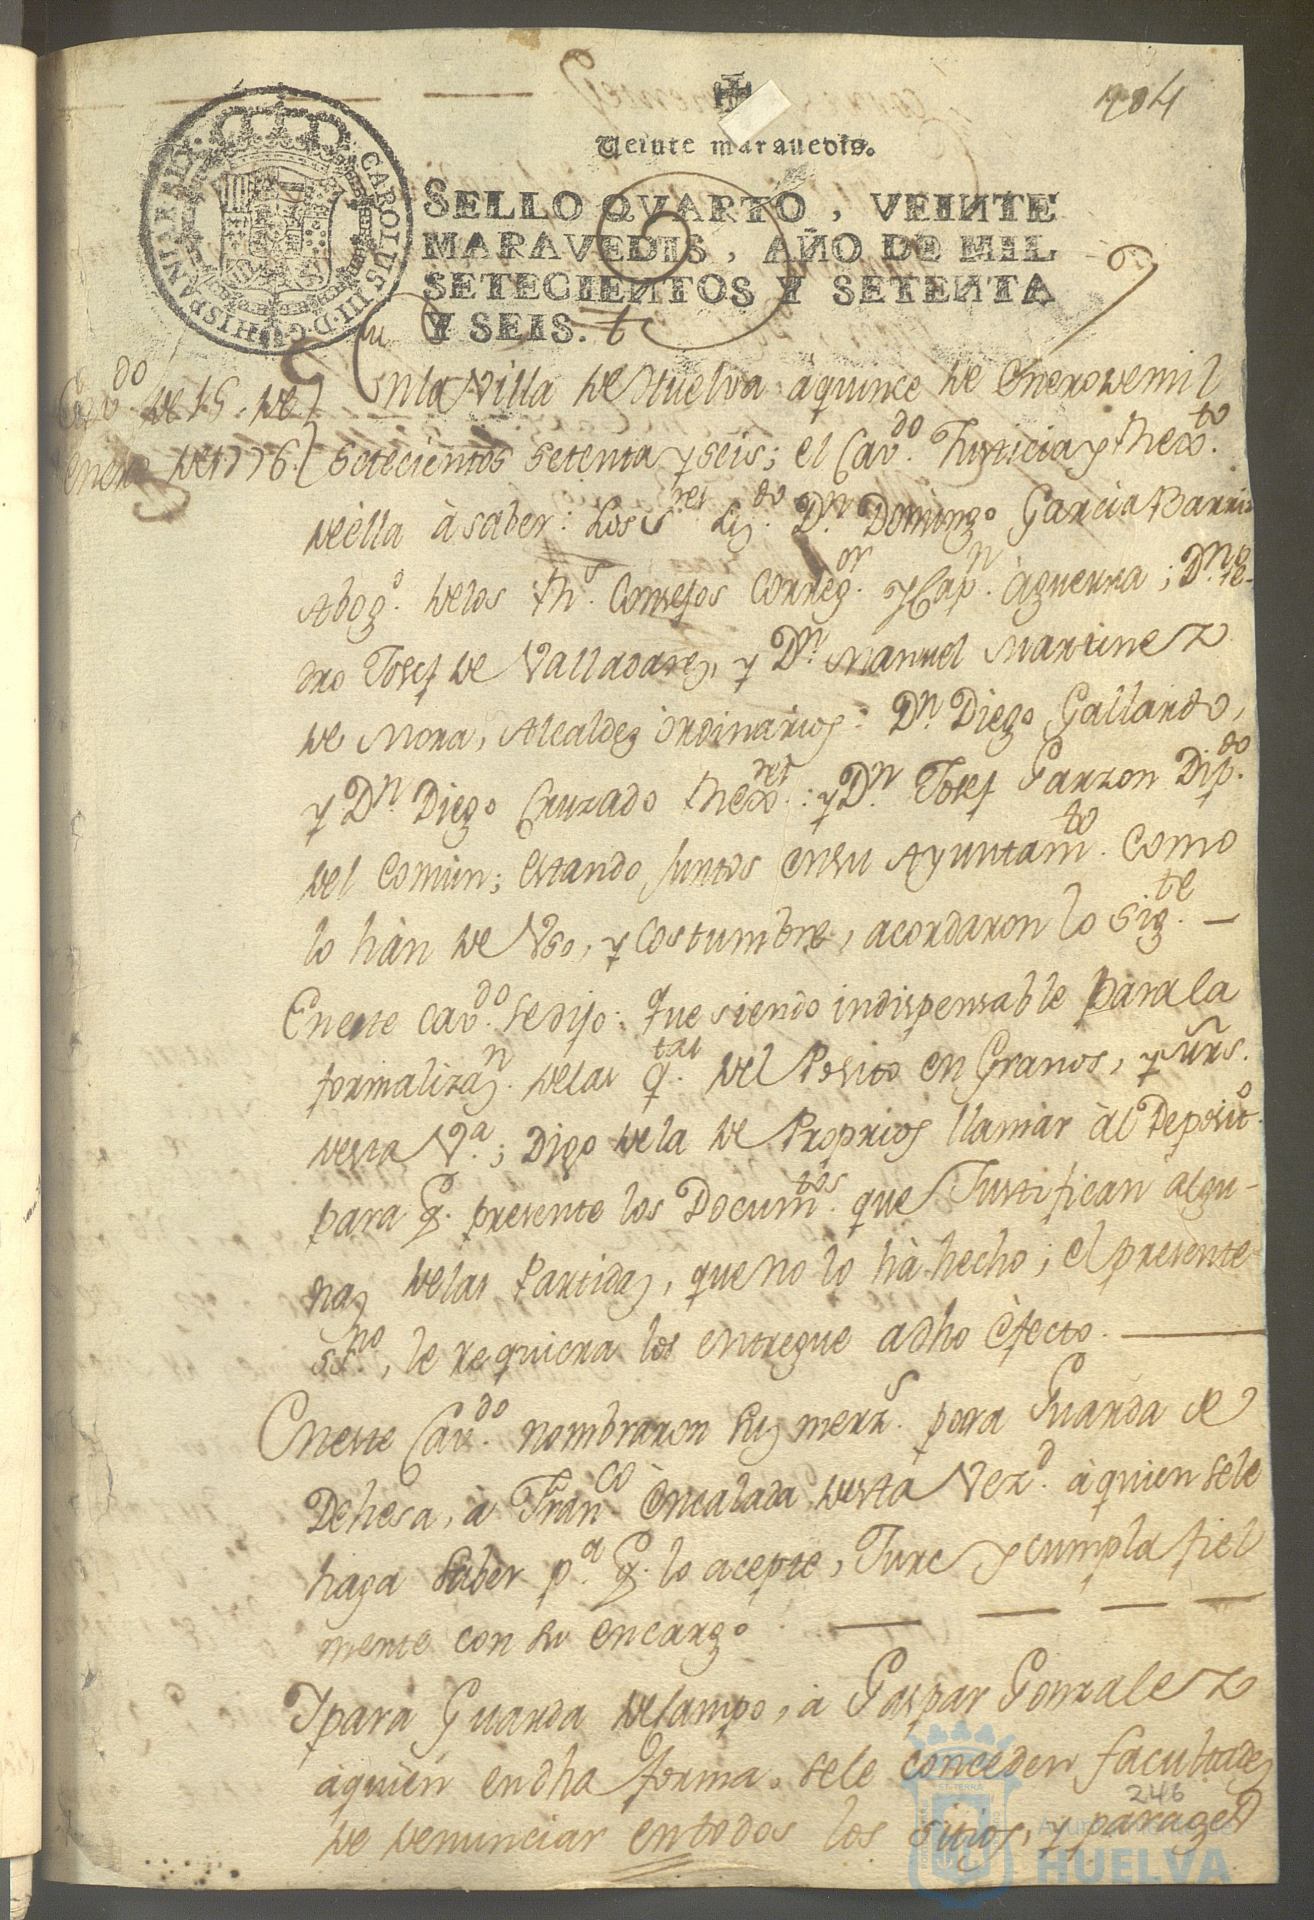 204
Veinte maravedis.
SELLO QVARTO, VEINTE
MARAVEDIS, AÑO DE MIL
SETECIENTOS Y SETENTA
Y SEIS.
CAROLUS III D G HISPANIAR REX
Cavdo de 15 de
enero de 1776
En la Villa de Huelva à quince de Enero de mil
setecientos setenta y seis; el Cavdo. Justicia y Rexto.
de èlla à saber: Los Sres Lizdo. Dn. Domingo Garcia Barri
Abogo. de los Rs. Consejos Corregor. y Capn. àguerra; Dn. Pe-
dro Josef de Valladares, y Dn. Manuel Martinez
de Mora, Alcaldes òrdinàrios: Dn. Diego Gallardo,
y Dn Diego Cruzado Rexres: y Dn. Josef Garzon Dipdo.
del Comùn; estando juntos en su Ayuntamto. como
lo hàn de Vso, y Costumbre, acordaron lo Sigte. —
En este Cavdo. se dijo: que siendo indispensable para la
formalizan. de las qtas. del Posito en Granos, y mrs.
desta Va.; Digo de la de Proprios llamàr àl Deposito.
para q. presente los Documtos. que Justifican algu-
nas de las Partidas, que no lo hà hecho; el presente
Ssno, le requiera los entregue a dho èfecto.
En este Cavdo. nombraron sus merzs. para Guarda de
Dehesa, à Franco Encalada desta Vezd. à quien se le
haga saber pa. q. lo acepte, Jure y cumpla fiel
mente con su encargo.
Y para Guarda del campo, à Gaspar Gonzalez
à quien en dha forma, se le conceden facultades
de denunciar en todos los sitios, y parages
246
Ayuntamiento de
HUELVA